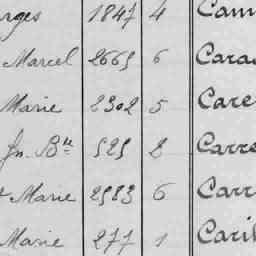 rges 1847 4 Cam
Marcel 2665 6 Cara
Marie 2302 5 Care
Jn. Bte 525 2 Carre
Marie 2583 6 Carr
Marie 277 1 Caril